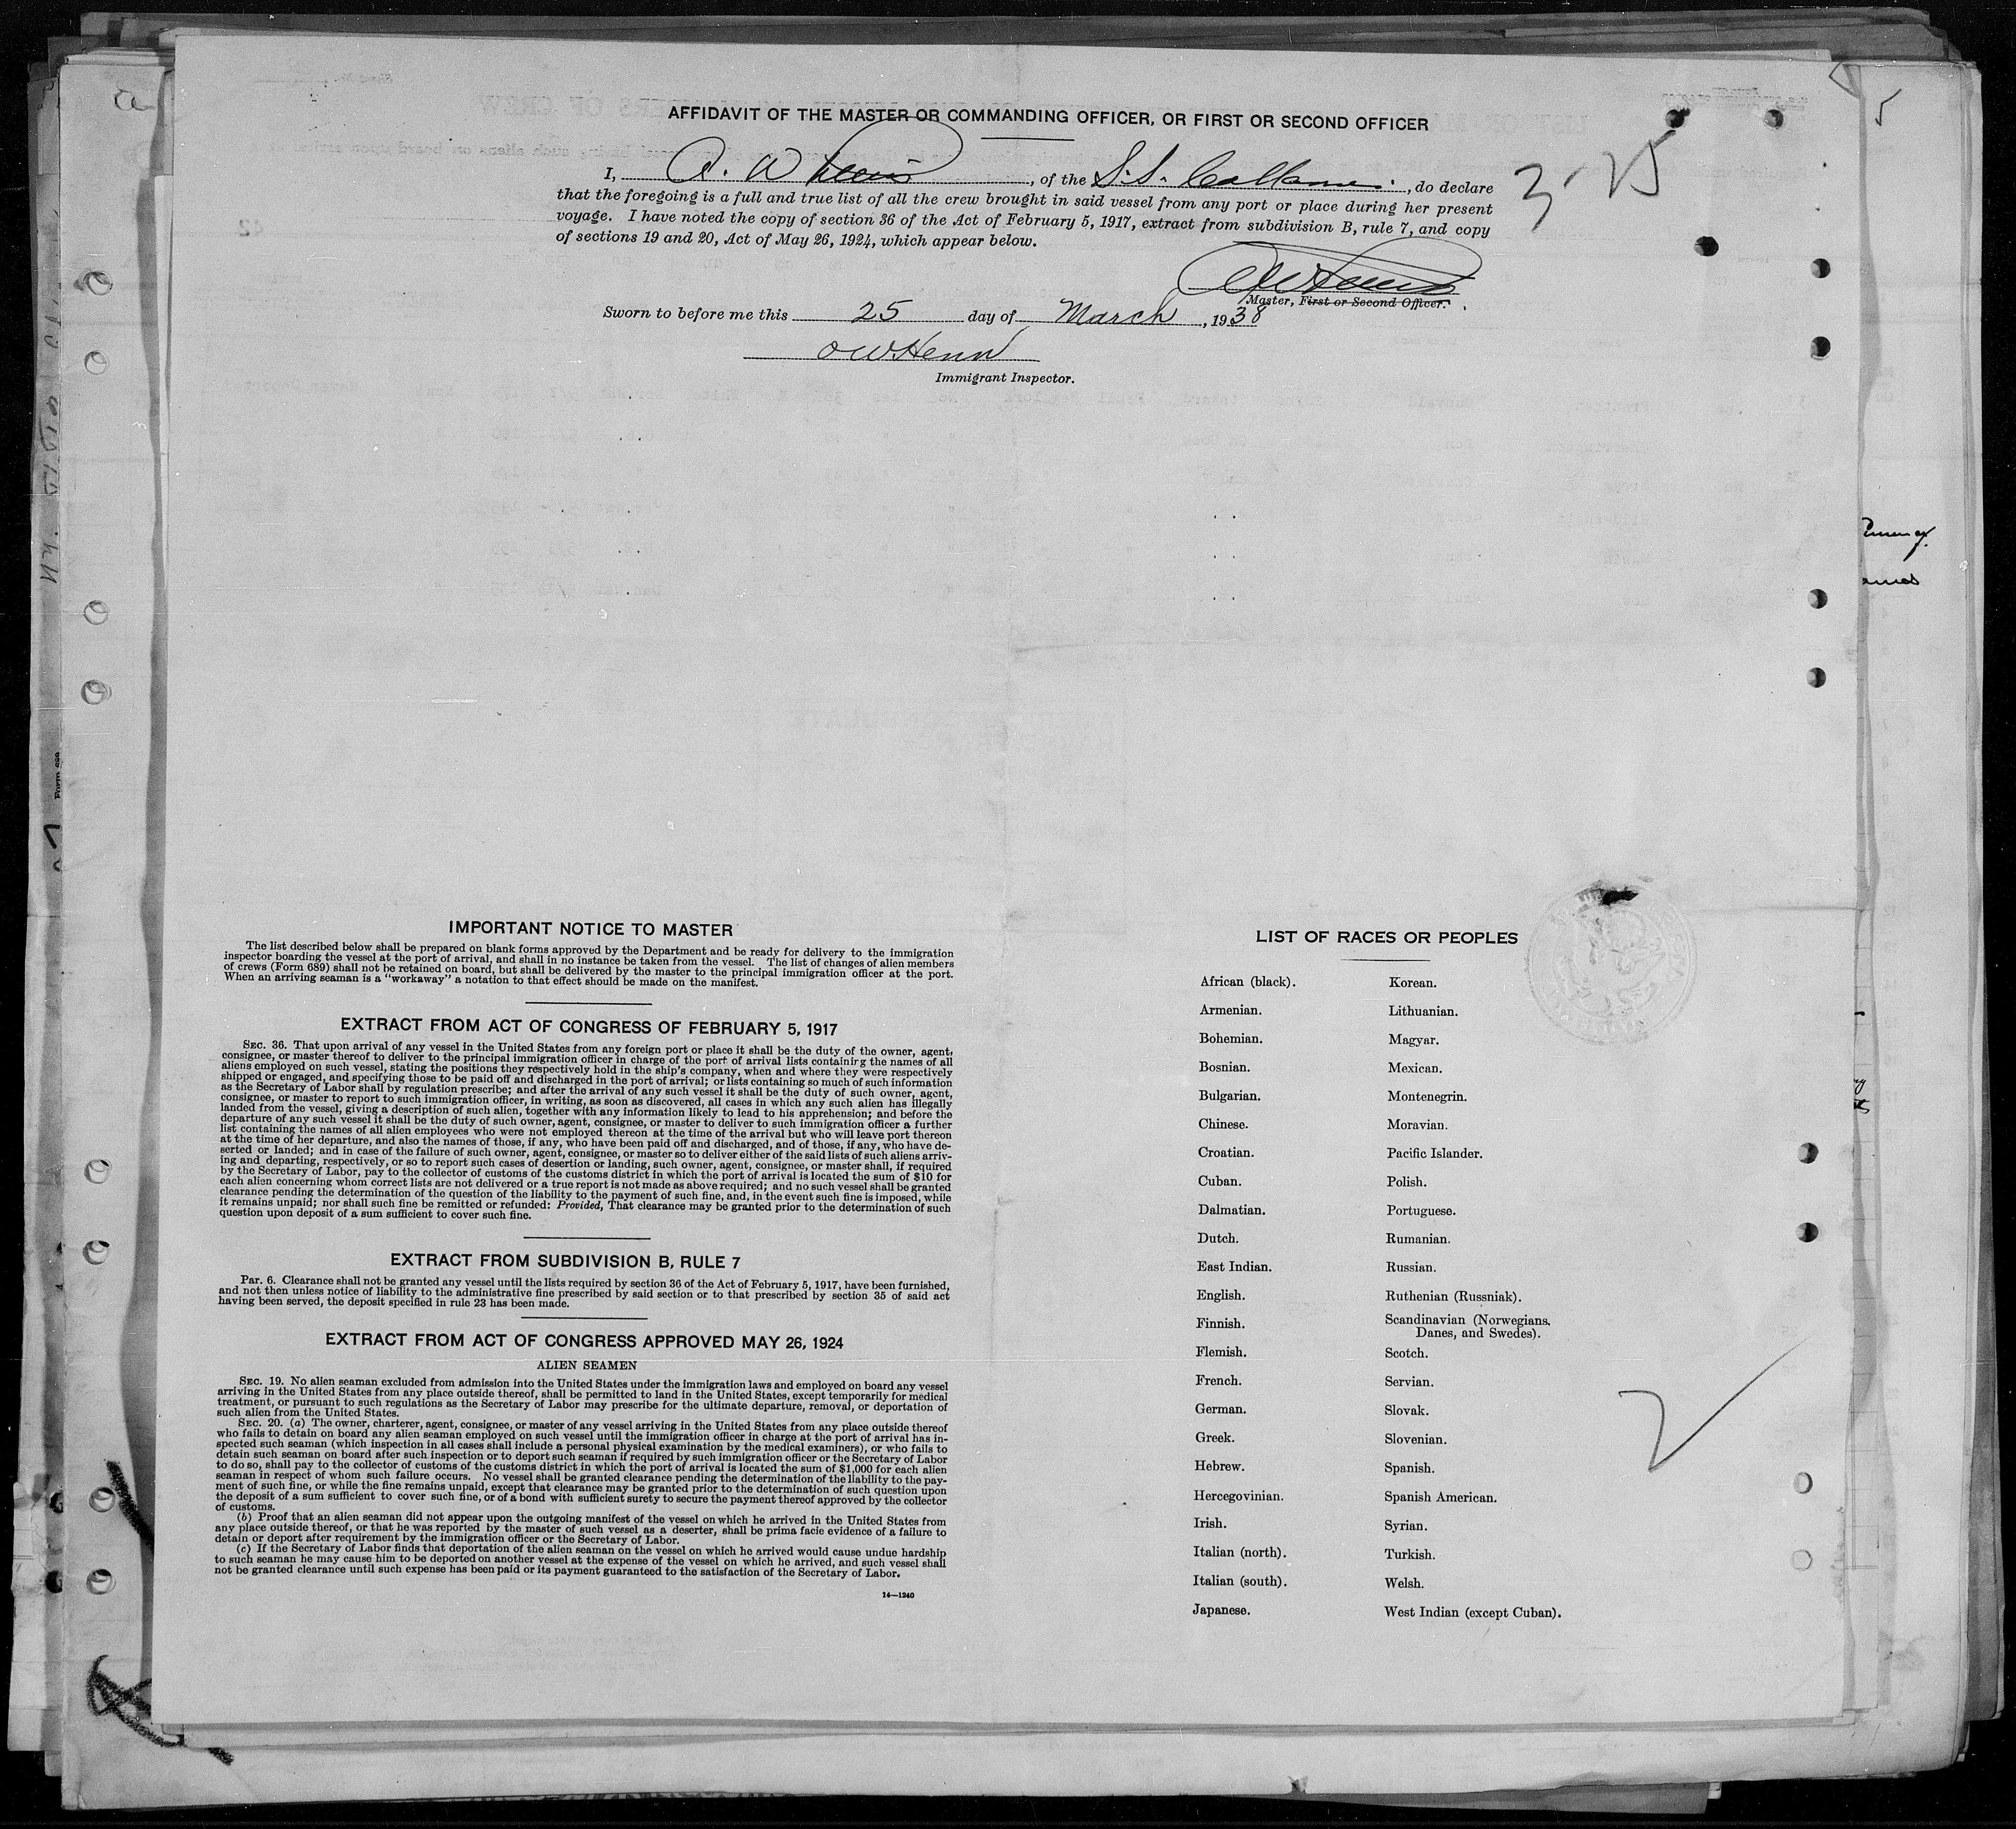 AFFIDAVIT OF THE MASTER OR COMMANDING OFFICER, OR FIRST OR SECOND OFFICER
I, A. W , of the S.S. , do declare
that the foregoing is a full and true list of all the crew brought in said vessel from any port or place during her present
voyage. I have noted the copy of section 36 of the Act of February 5, 1917, extract from subdivision B, rule 7, and copy
of sections 19 and 20, Act of May 26, 1924, which appear below.
3-25
5
Master, First or Second Officer.
Sworn to before me this 25 day of March, 1938
OWHenn
Immigrant Inspector.
IMPORTANT NOTICE TO MASTER
The list described below shall be prepared on blank forms approved by the Department and be ready for delivery to the immigration
inspector boarding the vessel at the port of arrival, and shall in no instance be taken from the vessel. The list of changes of alien members
of crews (Form 689) shall not be retained on board, but shall be delivered by the master to the principal immigration officer at the port.
When an arriving seaman is a "workaway" a notation to that effect should be made on the manifest.
EXTRACT FROM ACT OF CONGRESS OF FEBRUARY 5, 1917
SEC. 36. That upon arrival of any vessel in the United States from any foreign port or place it shall be the duty of the owner, agent,
consignee, or master thereof to deliver to the principal immigration officer in charge of the port of arrival lists containing the names of all
aliens employed on such vessel, stating the positions they respectively hold in the ship's company, when and where they were respectively
shipped or engaged, and specifying those to be paid off and discharged in the port of arrival; or lists containing so much of such information
as the Secretary of Labor shall by regulation prescribe; and after the arrival of any such vessel it shall be the duty of such owner, agent,
consignee, or master to report to such immigration officer, in writing, as soon as discovered, all cases in which any such alien has illegally
landed from the vessel, giving a description of such alien, together with any information likely to lead to his apprehension; and before the
departure of any such vessel it shall be the duty of such owner, agent, consignee, or master to deliver to such immigration officer a further
list containing the names of all alien employees who were not employed thereon at the time of the arrival but who will leave port thereon
at the time of her departure, and also the names of those, if any, who have been paid off and discharged, and of those, if any, who have de-
serted or landed; and in case of the failure of such owner, agent, consignee, or master so to deliver either of the said lists of such aliens arriv-
ing and departing, respectively, or so to report such cases of desertion or landing, such owner, agent, consignee, or master shall, if required
by the Secretary of Labor, pay to the collector of customs of the customs district in which the port of arrival is located the sum of $10 for
each alien concerning whom correct lists are not delivered or a true report is not made as above required; and no such vessel shall be granted
clearance pending the determination of the question of the liability to the payment of such fine, and, in the event such fine is imposed, while
it remains unpaid; nor shall such fine be remitted or refunded: Provided, That clearance may be granted prior to the determination of such
question upon deposit of a sum sufficient to cover such fine.
EXTRACT FROM SUBDIVISION B, RULE 7
Par. 6. Clearance shall not be granted any vessel until the lists required by section 36 of the Act of February 5, 1917, have been furnished,
and not then unless notice of liability to the administrative fine prescribed by said section or to that prescribed by section 35 of said act
having been served, the deposit specified in rule 23 has been made.
EXTRACT FROM ACT OF CONGRESS APPROVED MAY 26, 1924
ALIEN SEAMEN
SEC. 19. No alien seaman excluded from admission into the United States under the immigration laws and employed on board any vessel
arriving in the United States from any place outside thereof, shall be permitted to land in the United States, except temporarily for medical
treatment, or pursuant to such regulations as the Secretary of Labor may prescribe for the ultimate departure, removal, or deportation of
such alien from the United States.
SEC. 20. (a) The owner, charterer, agent, consignee, or master of any vessel arriving in the United States from any place outside thereof
who fails to detain on board any alien seaman employed on such vessel until the immigration officer in charge at the port of arrival has in-
spected such seaman (which inspection in all cases shall include a personal physical examination by the medical examiners), or who fails to
detain such seaman on board after such inspection or to deport such seaman if required by such immigration officer or the Secretary of Labor
to do so, shall pay to the collector of customs of the customs district in which the port of arrival is located the sum of $1,000 for each alien
seaman in respect of whom such failure occurs. No vessel shall be granted clearance pending the determination of the liability to the pay-
ment of such fine, or while the fine remains unpaid, except that clearance may be granted prior to the determination of such question upon
the deposit of a sum sufficient to cover such fine, or of a bond with sufficient surety to secure the payment thereof approved by the collector
of customs.
(b) Proof that an alien seaman did not appear upon the outgoing manifest of the vessel on which he arrived in the United States from
any place outside thereof, or that he was reported by the master of such vessel as a deserter, shall be prima facie evidence of a failure to
detain or deport after requirement by the immigration officer or the Secretary of Labor.
(c) If the Secretary of Labor finds that deportation of the alien seaman on the vessel on which he arrived would cause undue hardship
to such seaman he may cause him to be deported on another vessel at the expense of the vessel on which he arrived, and such vessel shall
not be granted clearance until such expense has been paid or its payment guaranteed to the satisfaction of the Secretary of Labor.
14—1240
LIST OF RACES OR PEOPLES
African (black). Korean.
Armenian. Lithuanian.
Bohemian. Magyar.
Bosnian. Mexican.
Bulgarian. Montenegrin.
Chinese. Moravian.
Croatian. Pacific Islander.
Cuban. Polish.
Dalmatian. Portuguese.
Dutch. Rumanian.
East Indian. Russian.
English. Ruthenian (Russniak).
Finnish. Scandinavian (Norwegians,
Danes, and Swedes).
Flemish. Scotch.
French. Servian.
German. Slovak.
Greek. Slovenian.
Hebrew. Spanish.
Hercegovinian. Spanish American.
Irish. Syrian.
Italian (north). Turkish.
Italian (south). Welsh.
Japanese. West Indian (except Cuban).
Form 689